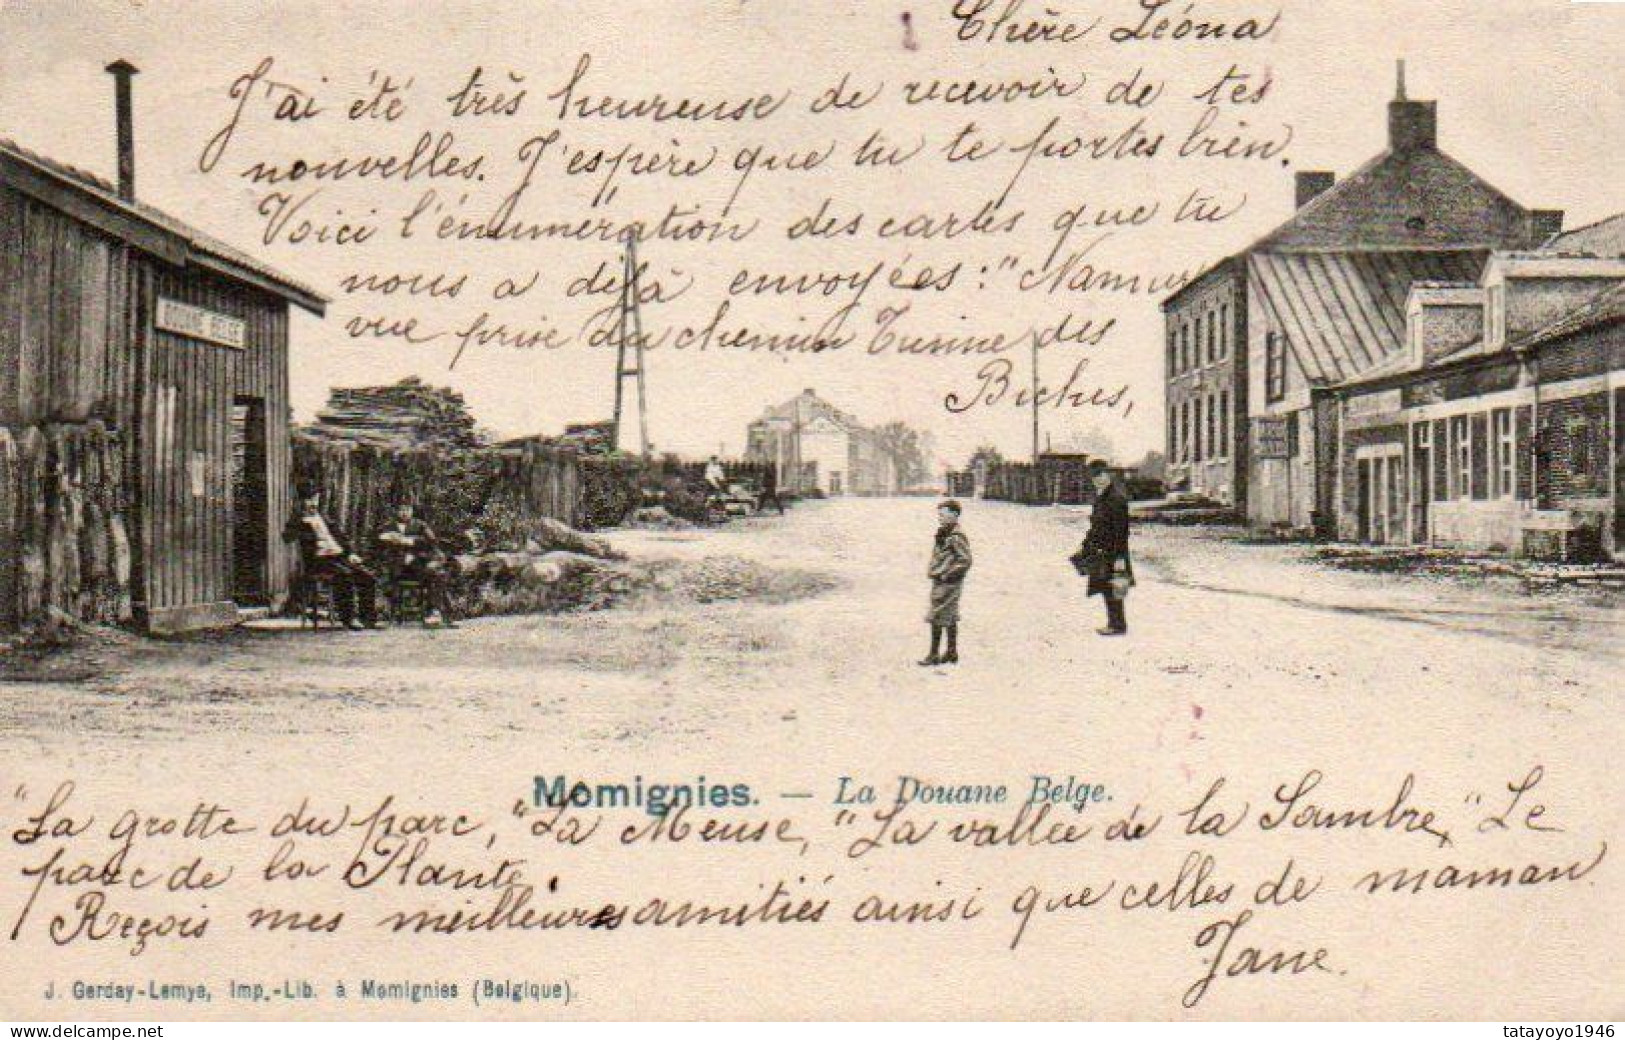 Chère Léona
J'ai été très heureuse de recevoir de tes
nouvelles. J'espère que tu te portes bien.
Voici l'énumération des cartes que tu
nous a déjà envoyées : "Namur
vue prise du chemin Tienne des
Biches,
DOUANE BELGE
Momignies. — La Douane Belge.
"La grotte du parc, "La Meuse, "La vallée de la Sambre, "Le
parc de la Plante.
Reçois mes meilleures amitiés ainsi que celles de maman.
Jane.
J. Gerday-Lemye, Imp.-Lib. à Momignies (Belgique).
delcampe.net
tatayoyo1946